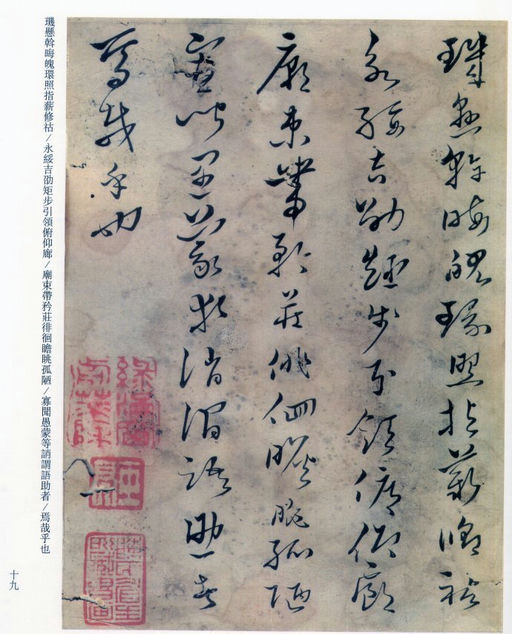 璣懸斡晦魄環照指薪修祜
永綏吉劭矩步引領俯仰廊
廟束帶矜莊徘徊瞻眺孤陋
寡聞愚蒙等誚謂語助者
焉哉乎也
璣懸斡晦魄環照指薪修祜／永綏吉劭矩步引領俯仰廊／廟束帶矜莊徘徊瞻眺孤陋／寡聞愚蒙等誚謂語助者／焉哉乎也
十九